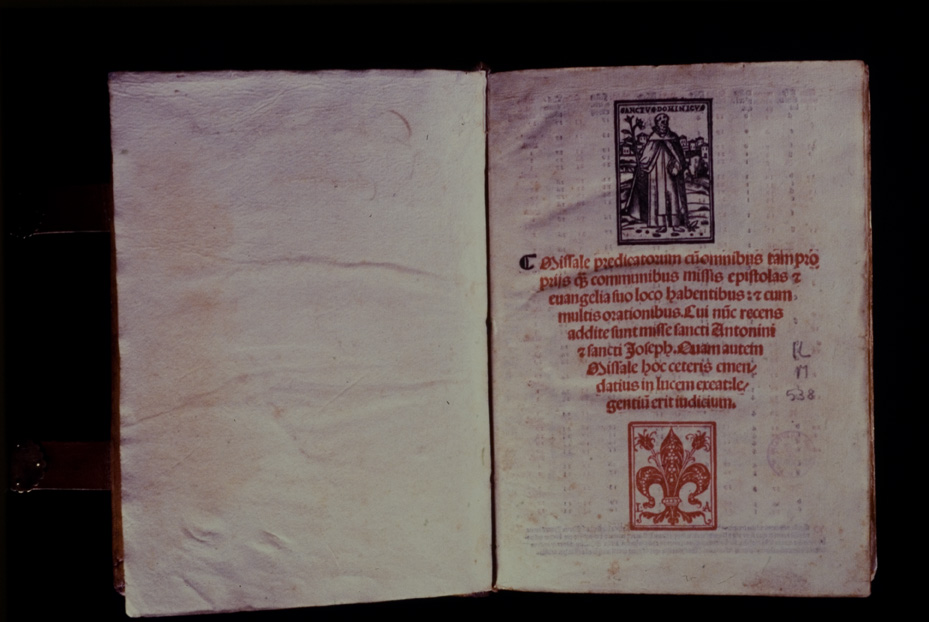 SANCTVS DOMINICVS
C Missale predicatorum cũ omnibus tam pro
priis q̃ communibus missis epistolas ⁊
euangelia suo loco habentibus: ⁊ cum
multis orationibus. Cui nũc recens
addite sunt misse sancti Antonini
⁊ sancti Joseph. Quam autem
Missale hoc ceteris emen⸗
datius in lucem exeat: le⸗
gentiũ erit iudicium.
RL
M
538
L A